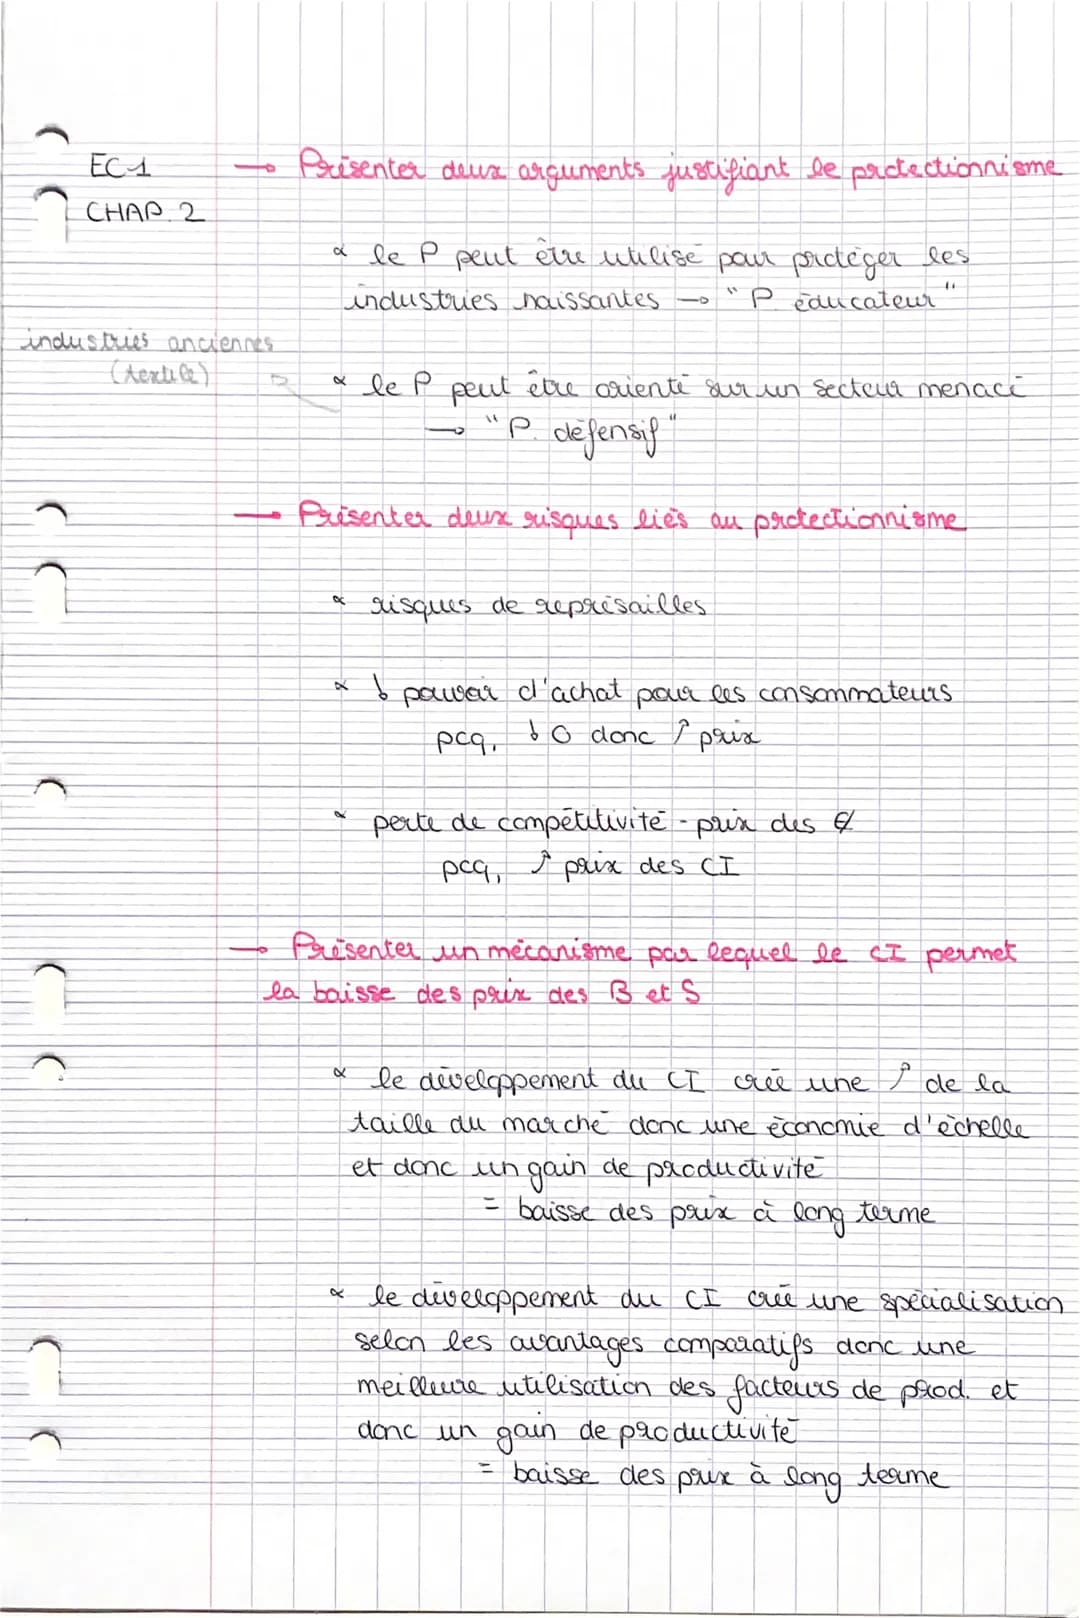 EC1 → Présenter deux arguments justifiant le protectionnisme
CHAP. 2
∝ le P peut être utilisé pour protéger les
industries naissantes → "P. éducateur"
industries anciennes
(textile)
∝ le P peut être orienté sur un secteur menacé
→ "P. défensif"
→ Présenter deux risques liés au protectionnisme
∝ risques de représailles
∝ ↓ pouvoir d'achat pour les consommateurs
pcq, ↓ O donc ↑ prix
∝ perte de compétitivité-prix des
pcq, ↑ prix des CI
→ Présenter un mécanisme par lequel le CI permet
la baisse des prix des B et S
∝ le développement du CI crée une ↑ de la
taille du marché donc une économie d'échelle
et donc un gain de productivité
= baisse des prix à long terme
∝ le développement du CI crée une spécialisation
selon les avantages comparatifs donc une
meilleure utilisation des facteurs de prod. et
donc un gain de productivité
= baisse des prix à long terme